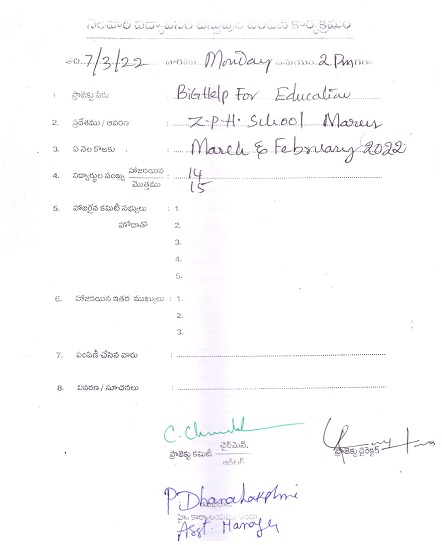 నెలవారి విద్యావసర వస్తువుల పంపిణీ కార్యక్రమం
తేది. 7/3/22 వారము Monday సమయం. 2 Pm గం
1. ప్రాజెక్టు పేరు : BigHelp For Education
2. ప్రదేశము / ఆవరణ : Z.P.H. School
3. ఏ నెల కొఱకు : March & February 2022
4. విద్యార్థుల సంఖ్య హాజరయిన : 14
మొత్తము 15
5. హాజరైన కమిటీ సభ్యులు : 1.
హోదాతో 2.
3.
4.
5.
6. హాజరయిన ఇతర ముఖ్యులు : 1.
2.
3.
7. పంపిణీ చేసిన వారు :
8. వివరణ / సూచనలు :
ప్రాజెక్టు కమిటీ చైర్మెన్.
ప్రాజెక్టు డైరెక్టర్
P. Dhanalakshmi
Asst. Manager